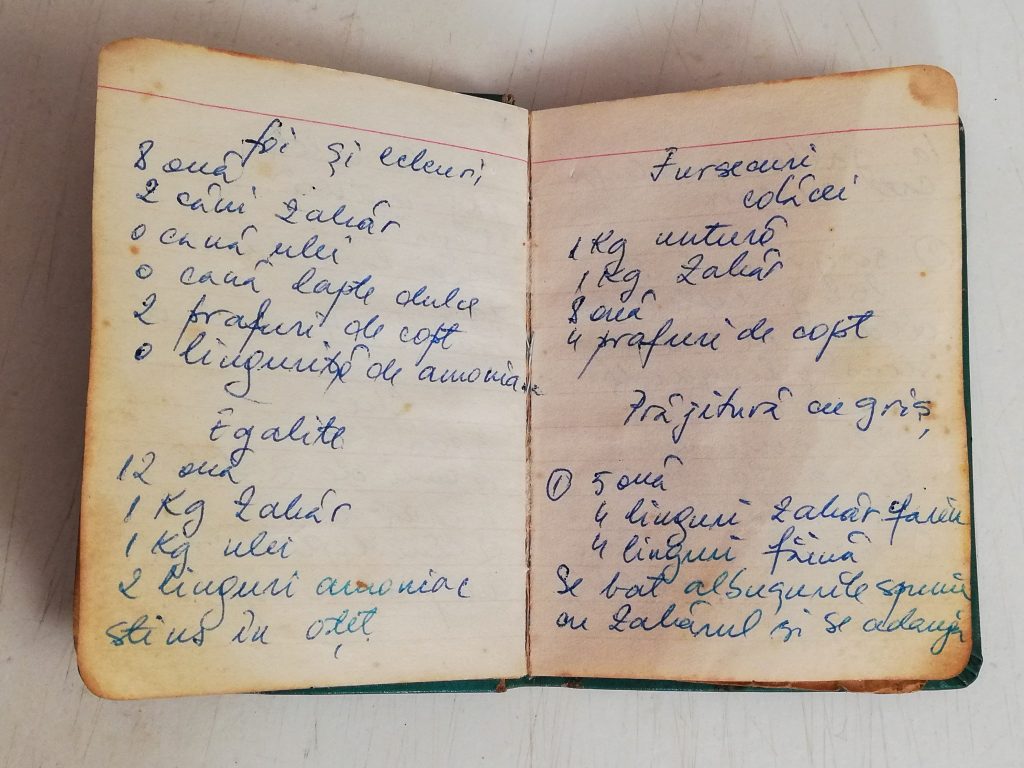 foi și ecleuri
8 ouă
2 căni zahăr
o cană ulei
o cană lapte dulce
2 prafuri de copt
o linguriță de amoniac
Egalite
12 ouă
1 Kg zahăr
1 Kg ulei
2 linguri amoniac
stins în oțet
Fursecuri
colăcei
1 Kg untură
1 Kg zahăr
8 ouă
4 prafuri de copt
Prăjitură cu griș
① 5 ouă
4 linguri zahăr farin
4 linguri făină
Se bat albușurile spumă
cu zahărul și se adaugă